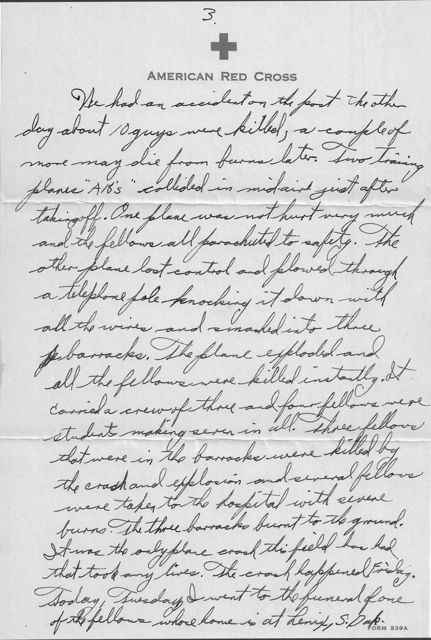 3.
American Red Cross
We had an accident on the post the other
day about 10 guys were killed, a couple of
more may die from burns later. Two training
planes "A18s" collided in midaire just after
taking off. One plane was not hurt very much
and the fellows all parachuted to safety. The
other plane lost control and plowed through
a telephone pole knocking it down with
all the wires and smashed into three
barracks. The plane exploded and
all the fellows were killed instantly. It
carried a crew of three and four fellows were
students making seven in all. Three fellows
that were in the barracks were killed by
the crash and explosion and several fellows
were taken to the hospital with severe
burns. The three barracks burnt to the ground.
It was the only plane crash this field has had
that took any lives. The crash happened Friday.
Today, Tuesday, I went to the funeral of one
of the fellows whose home is at S. Dak.
FORM 539A